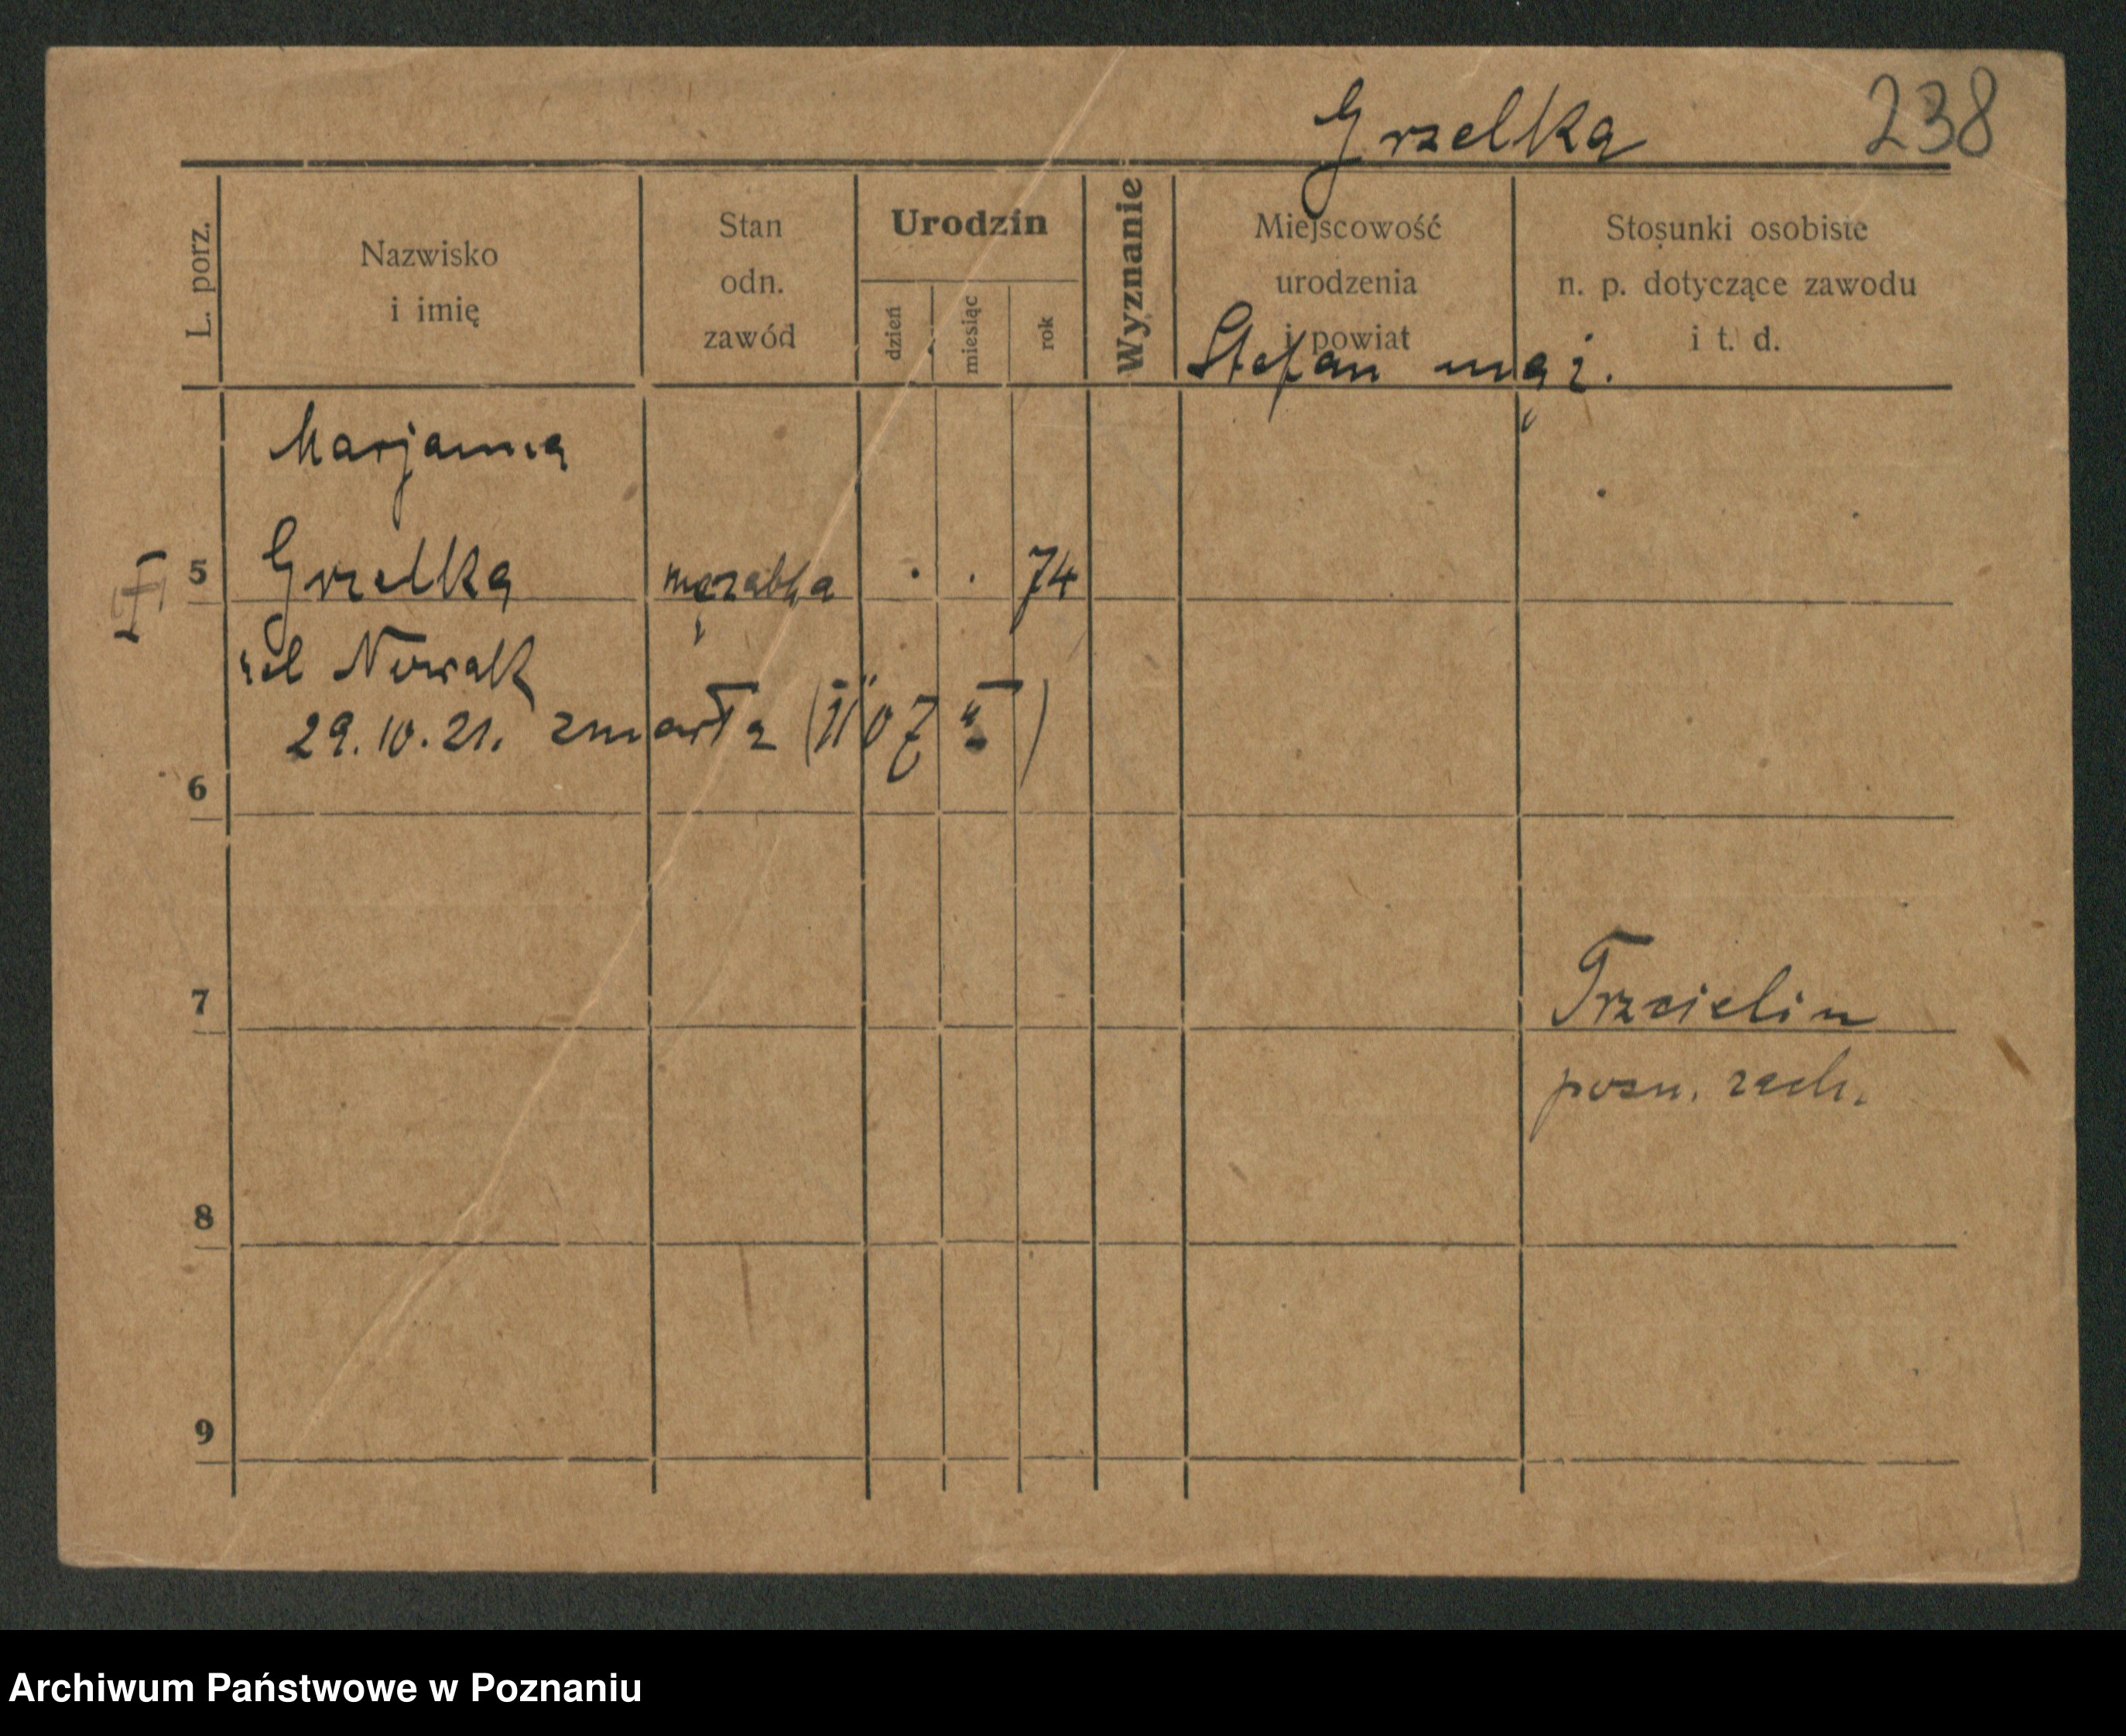 Grzelka 238
L. porz.
Nazwisko
i imię
Stan
odn.
zawód
Urodzin
dzień
miesiąc
rok
Wyznanie
Miejscowość
urodzenia
i powiat
Stosunki osobiste
n. p. dotyczące zawodu
i t. d.
Stefan mąż.
Marjanna
5 Grzelka mężatka . . 74
Nowak
29.10.21. zmarła
6
7 Trzcielin
pozn. zach.
8
9
Archiwum Państwowe w Poznaniu